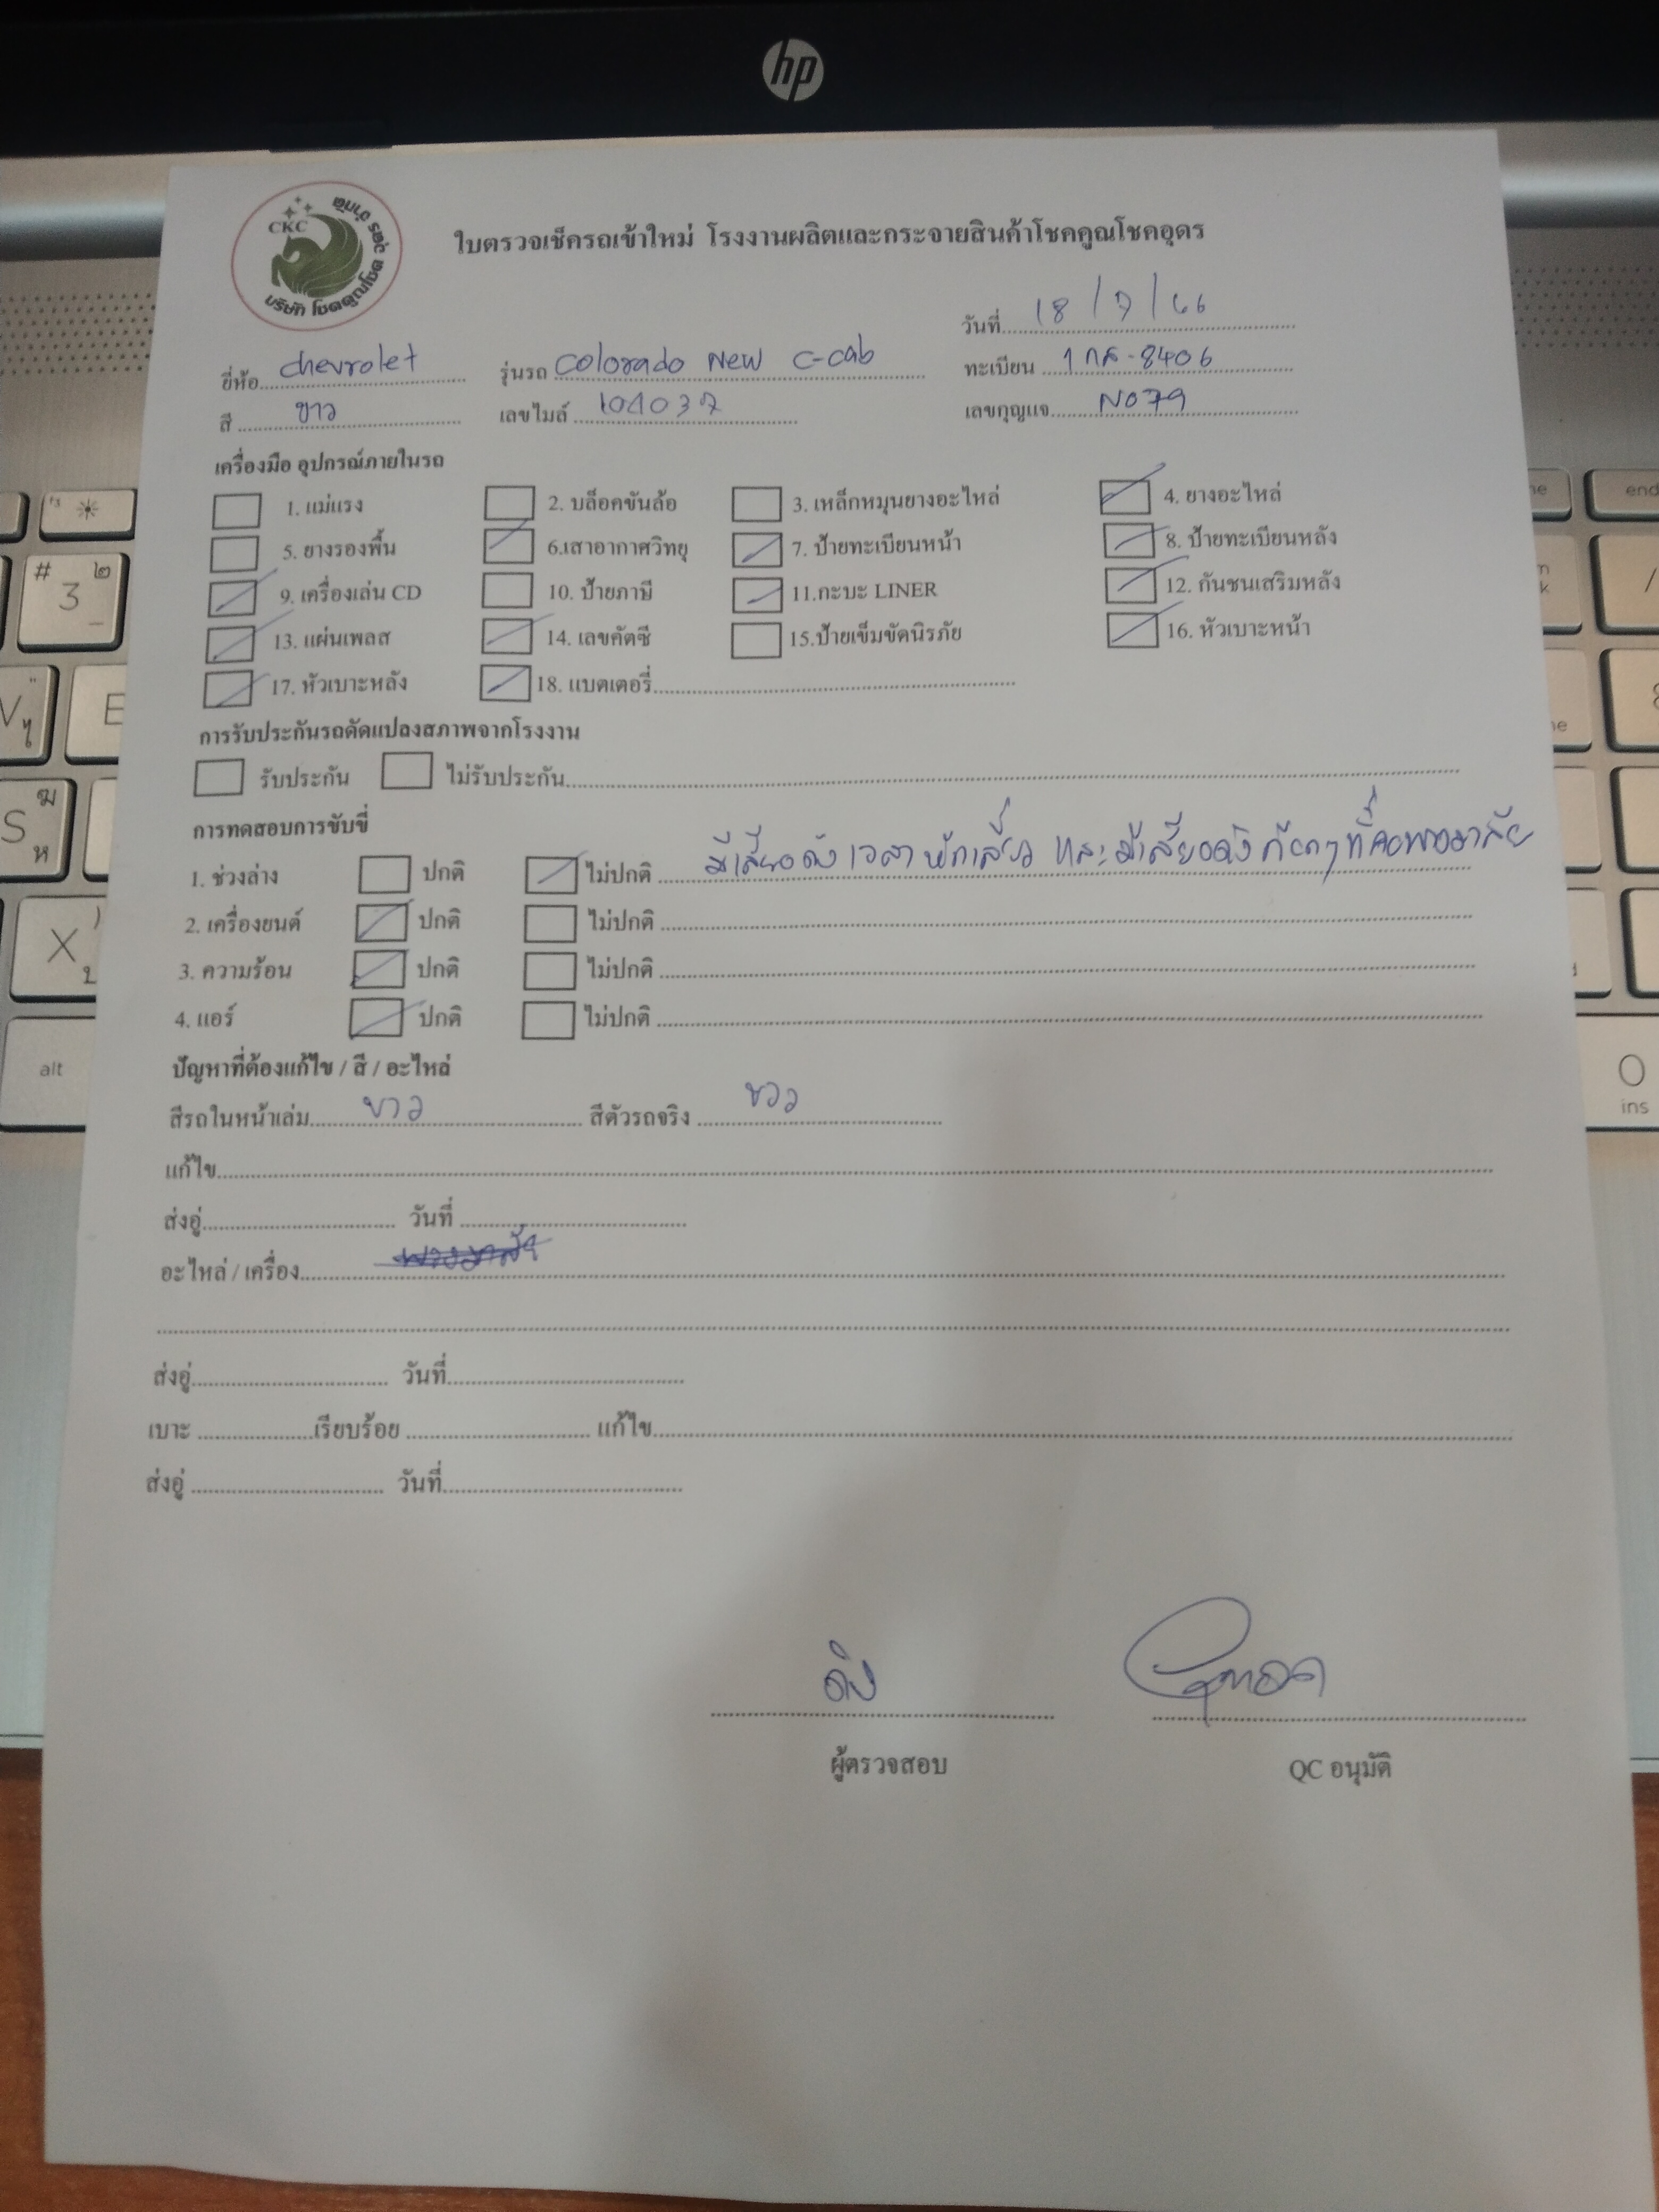 hp
CKC
บริษัท โชคคูณโชค อุดร จำกัด
ใบตรวจเช็ครถเข้าใหม่ โรงงานผลิตและกระจายสินค้าโชคคูณโชคอุดร
วันที่ 18 / 7 / 66
ยี่ห้อ chevrolet รุ่นรถ colorado New c-cab ทะเบียน 1 กศ-8406
สี ขาว เลขไมล์ 101037 เลขกุญแจ No79
เครื่องมือ อุปกรณ์ภายในรถ
1. แม่แรง 2. บล็อคขันล้อ 3. เหล็กหมุนยางอะไหล่ 4. ยางอะไหล่
5. ยางรองพื้น 6.เสาอากาศวิทยุ 7. ป้ายทะเบียนหน้า 8. ป้ายทะเบียนหลัง
9. เครื่องเล่น CD 10. ป้ายภาษี 11.กะบะ LINER 12. กันชนเสริมหลัง
13. แผ่นเพลส 14. เลขคัตซี 15.ป้ายเข็มขัดนิรภัย 16. หัวเบาะหน้า
17. หัวเบาะหลัง 18. แบตเตอรี่
การรับประกันรถดัดแปลงสภาพจากโรงงาน
รับประกัน ไม่รับประกัน
การทดสอบการขับขี่
1. ช่วงล่าง ปกติ ไม่ปกติ มีเสียงดัง เวลาหักเลี้ยว และมีเสียงดัง ก๊อกๆ ที่คอพวงมาลัย
2. เครื่องยนต์ ปกติ ไม่ปกติ
3. ความร้อน ปกติ ไม่ปกติ
4. แอร์ ปกติ ไม่ปกติ
ปัญหาที่ต้องแก้ไข / สี / อะไหล่
สีรถในหน้าเล่ม ขาว สีตัวรถจริง ขาว
แก้ไข
ส่งอู่ วันที่
อะไหล่ / เครื่อง
ส่งอู่ วันที่
เบาะ เรียบร้อย แก้ไข
ส่งอู่ วันที่
ผู้ตรวจสอบ QC อนุมัติ
# 3 ๒
S ฆ ห
X ) ป
alt
end
0
ins